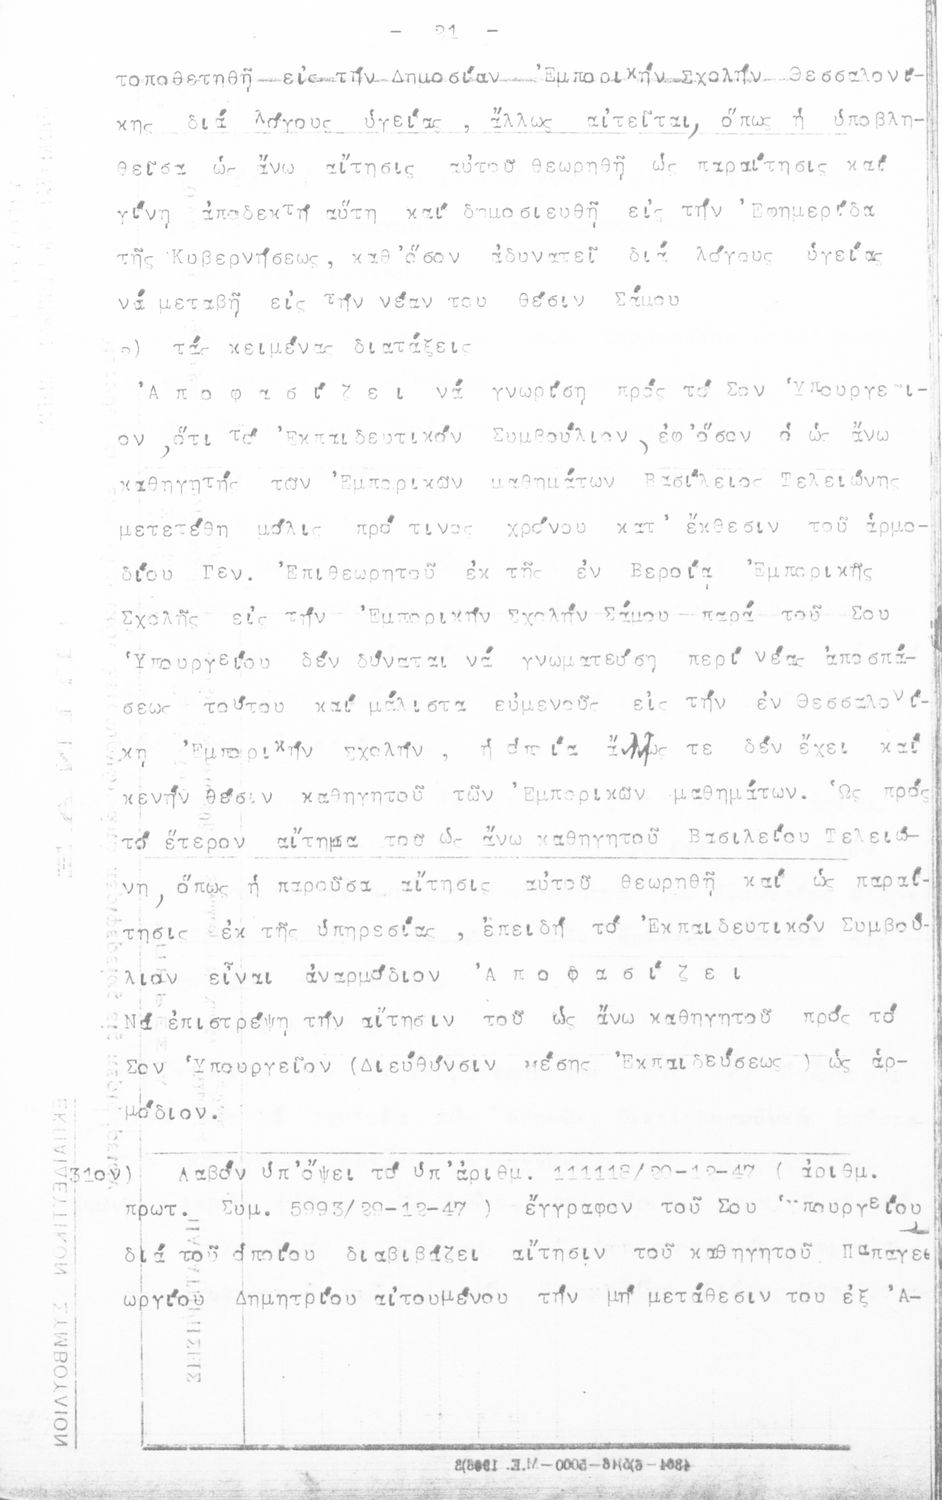 - 21 -
τοποθετηθῆ εἰς τήν Δημοσίαν Ἐμπορικήν Σχολήν Θεσσαλονί-
κης διά λόγους ὑγείας , ἄλλως αἰτεῖται, ὅπως ἡ ὑποβλη-
θεῖσα ὡς ἄνω αἴτησις αὐτοῦ θεωρηθῆ ὡς παραίτησις καί
γίνη ἀποδεκτή αὕτη καί δημοσιευθῆ εἰς τήν Ἐφημερίδα
τῆς Κυβερνήσεως, καθ'ὅσον ἀδυνατεῖ διά λόγους ὑγείας
νά μεταβῆ εἰς τήν νέαν του θέσιν Σάμου
) τάς κειμένας διατάξεις
Ἀ π ο φ α σ ί ζ ε ι νά γνωρίση πρός τό Σον Ὑπουργεῖ-
ον ,ὅτι τό Ἐκπαιδευτικόν Συμβούλιον , ἐφ'ὅσον ὁ ὡς ἄνω
καθηγητής τῶν Ἐμπορικῶν μαθημάτων Βασίλειος Τελειώνης
μετετέθη μόλις πρό τινος χρόνου κατ' ἔκθεσιν τοῦ ἁρμο-
δίου Γεν. Ἐπιθεωρητοῦ ἐκ τῆς ἐν Βεροία Ἐμπορικῆς
Σχολῆς εἰς τήν Ἐμπορικήν Σχολήν Σάμου παρά τοῦ Σου
Ὑπουργείου δέν δύναται νά γνωματεύση περί νέας ἀποσπά-
σεως τούτου καί μάλιστα εὐμενοῦς εἰς τήν ἐν Θεσσαλονί-
κη Ἐμπορικήν σχολήν , ἡ ὁποία ἄλλως τε δέν ἔχει καί
κενήν θέσιν καθηγητοῦ τῶν Ἐμπορικῶν μαθημάτων. Ὡς πρός
τό ἕτερον αἴτημα τοῦ ὡς ἄνω καθηγητοῦ Βασιλείου Τελειώ-
νη, ὅπως ἡ παροῦσα αἴτησις αὐτοῦ θεωρηθῆ καί ὡς παραί-
τησις ἐκ τῆς ὑπηρεσίας , ἐπειδή τό Ἐκπαιδευτικόν Συμβού-
λιον εἶναι ἀναρμόδιον Ἀ π ο φ α σ ί ζ ε ι
Νά ἐπιστρέψη τήν αἴτησιν τοῦ ὡς ἄνω καθηγητοῦ πρός τό
Σον Ὑπουργεῖον (Διεύθυνσιν Μέσης Ἐκπαιδεύσεως ) ὡς ἁρ-
μόδιον.
31ον) Λαβόν ὑπ'ὄψει τό ὑπ'ἀριθμ. 111118/20-12-47 ( ἀριθμ.
πρωτ. Συμ. 5993/29-12-47 ) ἔγγραφον τοῦ Σου Ὑπουργείου
διά τοῦ ὁποίου διαβιβάζει αἴτησιν τοῦ καθηγητοῦ Παπαγε
ωργίου Δημητρίου αἰτουμένου τήν μή μετάθεσιν του ἐξ Ἀ-
ΕΚΠΑΙΔΕΥΤΙΚΟΝ ΣΥΜΒΟΥΛΙΟΝ